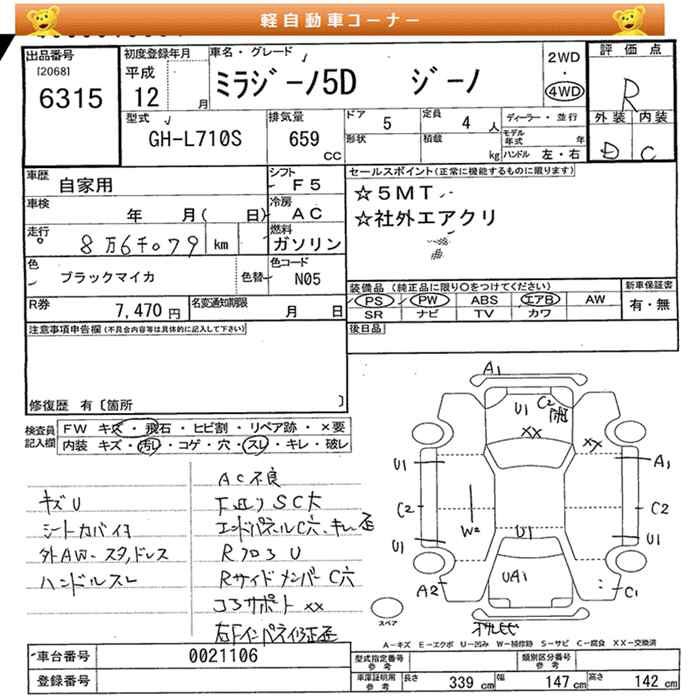 軽自動車コーナー
出品番号
[2068]
6315
初度登録年月
平成
12 月
車名・グレード
ミラジーノ5D ジーノ
2WD
・
4WD
評価点
R
外装 内装
D C
型式
GH-L710S
排気量
659
CC
ドア
5
形状
定員
4 人
積載
kg
ディーラー・並行
モデル年式 年
ハンドル 左・右
車歴
自家用
シフト
F5
車検
年 月( 日)
冷房
AC
走行
8万6千079 km
燃料
ガソリン
色
ブラックマイカ
色替
色コード
N05
R券
7,470 円
名変通知期限
月 日
セールスポイント(正常に機能するものに限ります)
☆5MT
☆社外エアクリ
装備品(純正品に限り○をつけてください)
PS PW ABS エアB AW
SR ナビ TV カワ
新車保証書
有・無
後日品
注意事項申告欄(不具合内容等は具体的に記入して下さい)
修復歴 有〔箇所 〕
検査員記入欄
FW キズ・飛石・ヒビ割・リペア跡・×要
内装 キズ・汚れ・コゲ・穴・スレ・キレ・破レ
キズU
シートカバーイヨ
外AW・スタッドレス
ハンドルスレ
AC不良
下廻りSC大
エンドパネルC穴、キレ、歪
RフロアU
RサイドメンバーC穴
コアサポートXX
右Fインパネ修正歪
A1
U1
C2
XX
XX
U1
A1
C2
W2
C2
U1
U1
U1
A2
UA1
C1
スペア
A-キズ E-エクボ U-凹み W-補修跡 S-サビ C-腐食 XX-交換済
車台番号
0021106
登録番号
型式指定番号
参考
類別区分番号
参考
車庫証明用
参考
長さ 339 cm
幅 147 cm
高さ 142 cm